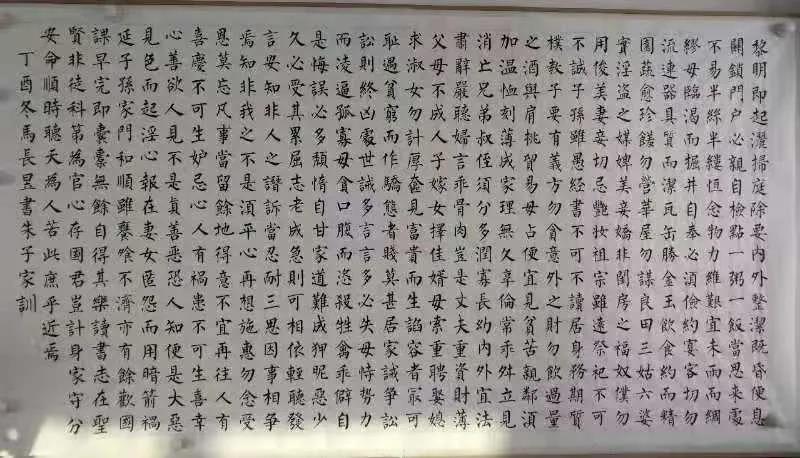 黎明即起灑掃庭除要內外整潔既昏便息
關鎖門户必親自檢點一粥一飯當思來處
不易半絲半縷恆念物力維艱宜未雨而綢
繆毋臨渴而掘井自奉必須儉約宴客切勿
流連器具質而潔瓦缶勝金玉飲食約而精
園蔬愈珍饈勿營華屋勿謀良田三姑六婆
實淫盜之媒婢美妾嬌非閨房之福奴僕勿
用俊美妻妾切忌艷妝祖宗雖遠祭祀不可
不誠子孫雖愚經書不可不讀居身務期質
樸教子要有義方勿貪意外之財勿飲過量
之酒與肩挑貿易毋占便宜見貧苦親鄰須
加温恤刻薄成家理無久享倫常乖舛立見
消亡兄弟叔侄須分多潤寡長幼內外宜法
肅辭嚴聽婦言乖骨肉豈是丈夫重資財薄
父母不成人子嫁女擇佳婿毋索重聘娶媳
求淑女勿計厚奩見富貴而生諂容者最可
恥遇貧窮而作驕態者賤莫甚居家誡爭訟
訟則終凶處世誡多言言多必失毋恃勢力
而凌逼孤寡毋貪口腹而恣殺牲禽乖僻自
是悔誤必多頹惰自甘家道難成狎昵惡少
久必受其累屈志老成急則可相依輕聽發
言安知非人之譖訴當忍耐三思因事相爭
焉知非我之不是須平心再想施惠勿念受
恩莫忘凡事當留餘地得意不宜再往人有
喜慶不可生妒忌心人有禍患不可生喜幸
心善欲人見不是真善惡恐人知便是大惡
見色而起淫心報在妻女匿怨而用暗箭禍
延子孫家門和順雖饔飧不濟亦有餘歡國
課早完即囊橐無餘自得其樂讀書志在聖
賢非徒科第為官心存國君豈計身家守分
安命順時聽天為人若此庶乎近焉
丁酉冬馬長昱書朱子家訓